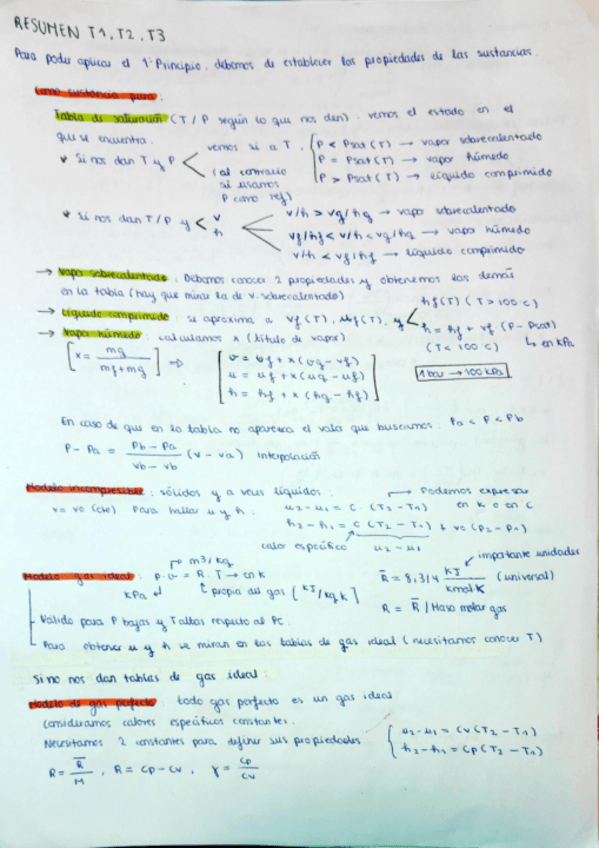 RESUMEN T1, T2, T3
Para poder aplicar el 1º Principio, debemos de establecer las propiedades de las sustancias.
Como sustancia pura:
Tabla de saturación (T / P según lo que nos den): vemos el estado en el
que se encuentra.
• Si nos dan T y P < vemos si a T, (al contrario si usamos P como ref)
P < Psat (T) → vapor sobrecalentado
P = Psat (T) → vapor húmedo
P > Psat (T) → líquido comprimido
• Si nos dan T / P y < v h
v/h > vg/hg → vapor sobrecalentado
vf/hf < v/h < vg/hg → vapor húmedo
v/h < vf/hf → líquido comprimido
→ Vapor sobrecalentado: Debemos conocer 2 propiedades y obtenemos las demás
en la tabla (hay que mirar la de v. sobrecalentado)
→ Líquido comprimido: se aproxima a vf (T), uf (T), y < hf (T) (T > 100°C)
h = hf + vf (P - Psat) → en kPa
(T < 100°C)
→ Vapor húmedo: calculamos x (título de vapor)
[x = mg / mf + mg] ⇒ [v = vf + x (vg - vf)
u = uf + x (ug - uf)
h = hf + x (hg - hf)]
1 bar → 100 kPa
En caso de que en la tabla no aparezca el valor que buscamos: Pa < P < Pb
P - Pa = Pb - Pa / vb - vb (v - va) interpolación
Modelo incompresible: sólidos y a veces líquidos: → Podemos expresar
v = v0 (cte) Para hallar u y h: u2 - u1 = C · (T2 - T1) en K o en C
h2 - h1 = C (T2 - T1) + v0 (P2 - P1)
calor específico u2 - u1
Modelo gas ideal: P · v = R · T → en K
m3/kg
kPa
propia del gas [kJ/kg K]
R̄ = 8,314 kJ / kmol·K (universal)
importante unidades
R = R̄ / Masa molar gas
- Válido para P bajas y T altas respecto al PC.
- Para obtener u y h se miran en las tablas de gas ideal (necesitamos conocer T)
Si no nos dan tablas de gas ideal:
Modelo de gas perfecto: todo gas perfecto es un gas ideal
Consideramos calores específicos constantes.
Necesitamos 2 constantes para definir sus propiedades:
u2 - u1 = Cv (T2 - T1)
h2 - h1 = Cp (T2 - T1)
R = R̄ / M, R = Cp - Cv, γ = Cp / Cv